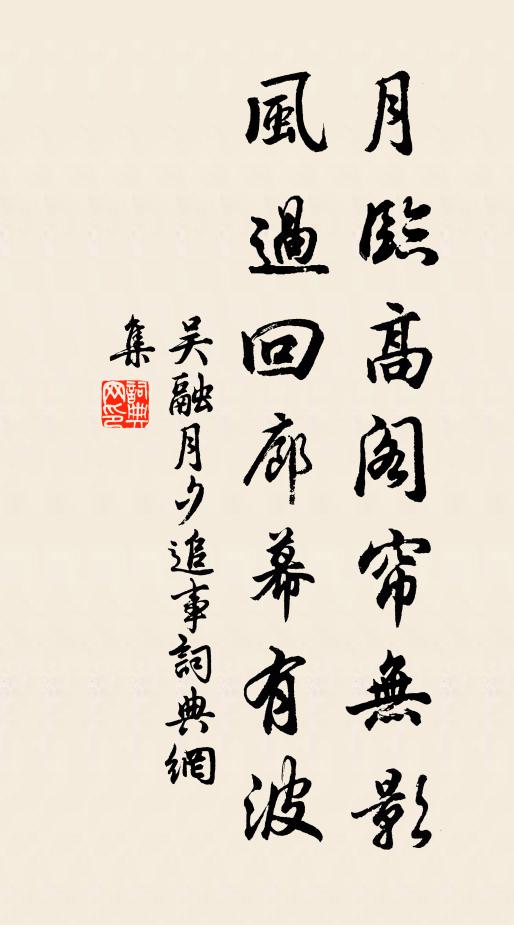 月臨高閣帘無影
風過回廊幕有波
吳融月夕追事詞典網
集
詞典網印